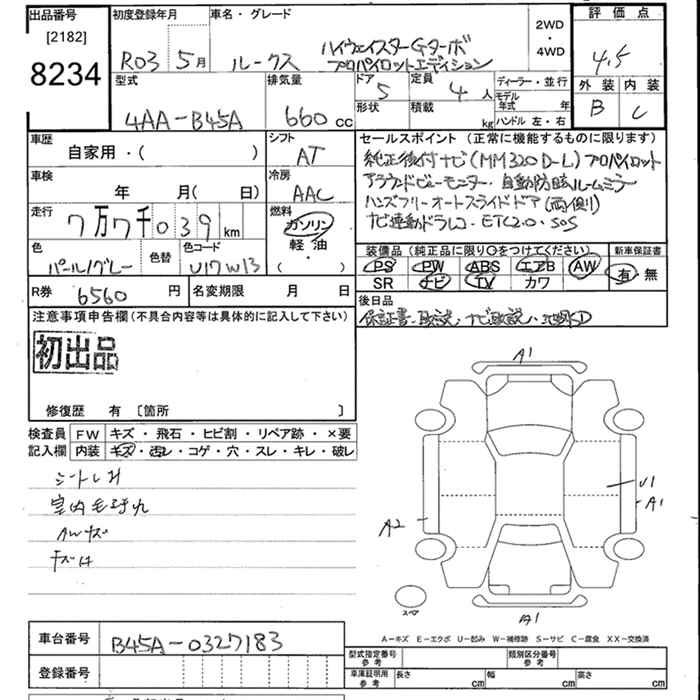 出品番号
[2182]
8234
初度登録年月
R03 5月
車名・グレード
ルークス
ハイウェイスターGターボ
プロパイロットエディション
2WD
・
4WD
評価点
4.5
外装 内装
B C
型式
4AA-B45A
排気量
660cc
ドア
5
定員
4人
形状
積載
kg
ディーラー・並行
モデル年式 年
ハンドル 左・右
車歴
自家用・( )
シフト
AT
車検
年 月( 日)
冷房
AAC
走行
7万7千039km
燃料
ガソリン
軽油
( )
色
パール/グレー
色替
色コード
U17W13
R券 6560円
名変期限 月 日
セールスポイント(正常に機能するものに限ります)
純正後付ナビ(MM320D-L)プロパイロット
アラウンドビューモニター・自動防眩ルームミラー
ハンズフリーオートスライドドア(両側)
ナビ連動ドラレコ・ETC2.0・SOS
装備品(純正品に限り○をつけてください)
PS PW ABS エアB AW
SR ナビ TV カワ
新車保証書
有 無
後日品
保証書・取説、ナビ取説・地図SD
注意事項申告欄(不具合内容等は具体的に記入して下さい)
初出品
修復歴 有 [箇所 ]
検査員
記入欄
FW キズ・飛石・ヒビ割・リペア跡・×要
内装 キズ・汚レ・コゲ・穴・スレ・キレ・破レ
室内
AWキズ
A1
U1
A1
A2
A1
スペア
A-キズ E-エクボ U-凹み W-補修跡 S-サビ C-腐食 XX-交換済
車台番号 B45A-0327183
登録番号
型式指定番号
参考
類別区分番号
参考
車庫証明用
参考
長さ cm
幅 cm
高さ cm